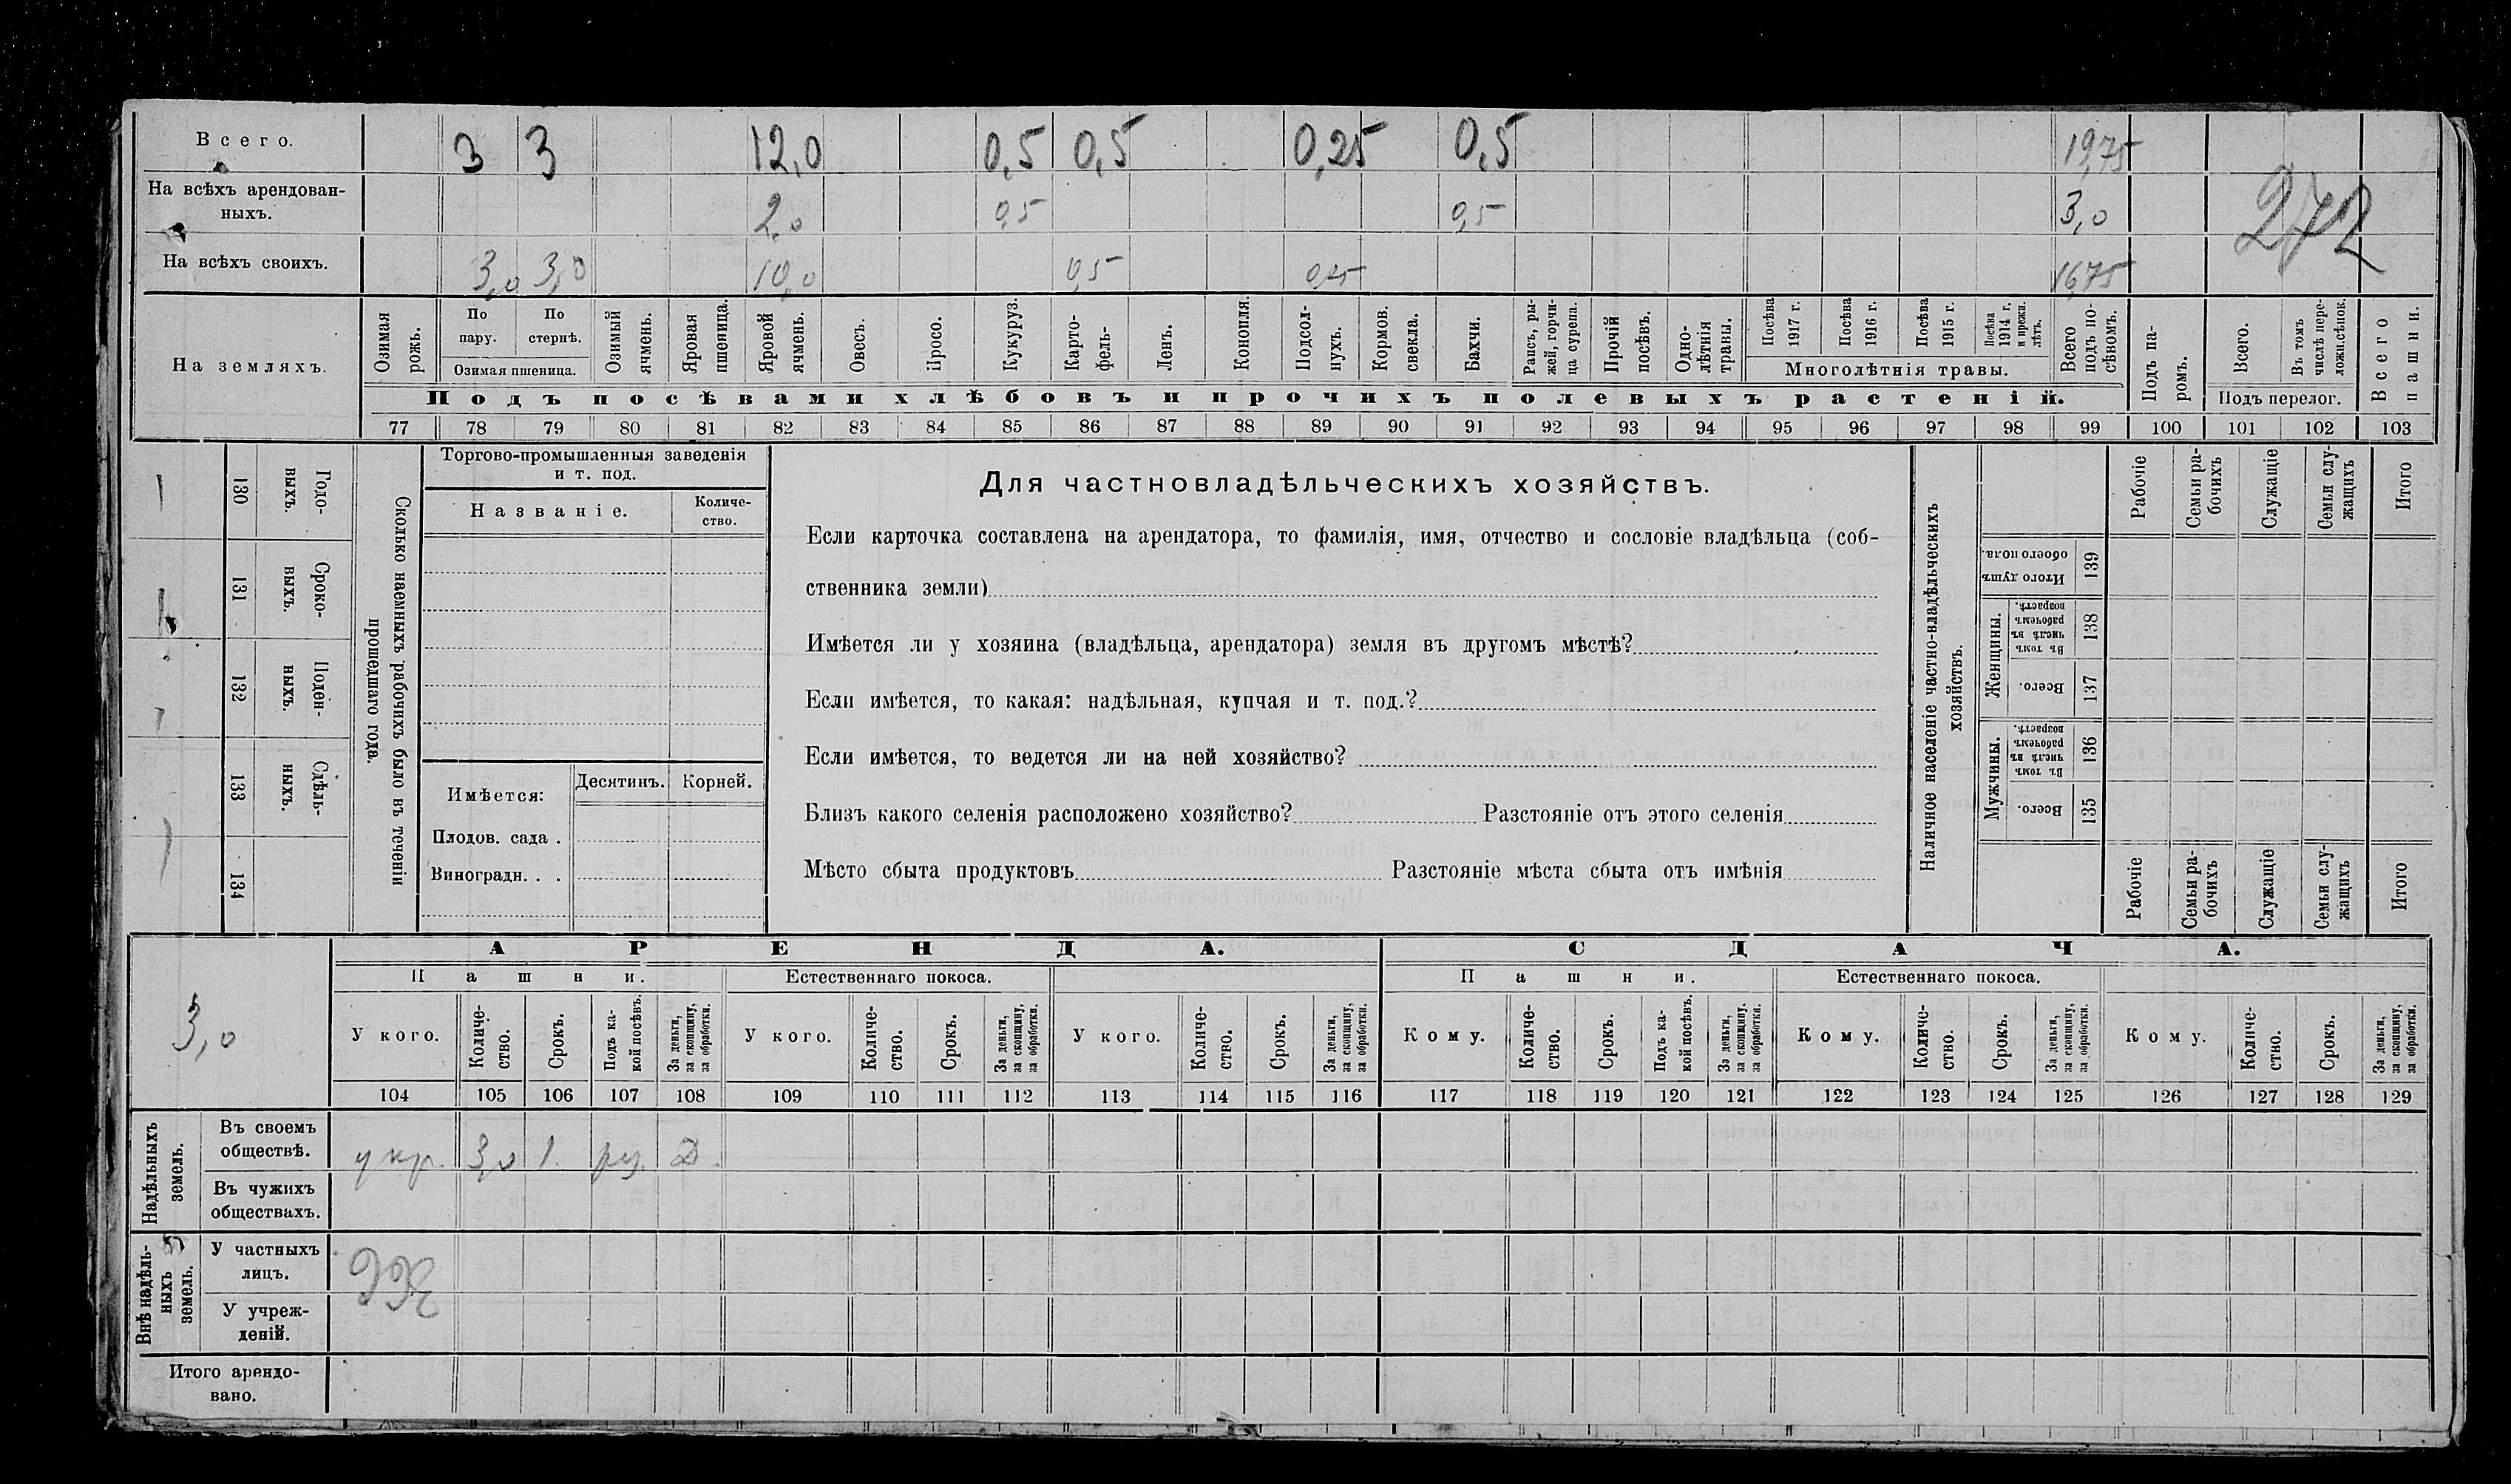 Всего. 3 3 12,0 0,5 0,5 0,25 0,5 19,75
На всѣхъ арендован-
ныхъ. 2,0 0,5 0,5 3,0
272
На всѣхъ своихъ. 3,0 3,0 10,0 0,5 0,25 16,75
На земляхъ.
Озимая рожь.
По пару.
По стернѣ.
Озимая пшеница.
Озимый ячмень.
Яровая пшеница.
Яровой ячмень.
Овесъ.
Просо.
Кукуруз.
Карто-
фель-
Ленъ.
Конопля.
Подсол-
нухъ.
Кормов. свекла.
Бахчи.
Рапсъ, ры-
жей, горчи-
ца сурепа.
Прочій посѣвъ.
Одно-
лѣтнія
травы.
Посѣва 1917 г.
Посѣва 1916 г.
Посѣва 1915 г.
Посѣва 1914 г. и прежн. лѣтъ.
Многолѣтнія травы.
Всего подъ по-
сѣвомъ.
Подъ па-
ромъ.
Всего.
Въ томъ числѣ пере-
ложн.сѣнок.
Подъ перелог.
Всего пашни.
Подъ посѣвами хлѣбовъ и прочихъ полевыхъ растеній.
77 78 79 80 81 82 83 84 85 86 87 88 89 90 91 92 93 94 95 96 97 98 99 100 101 102 103
130 Годо-
выхъ.
131 Сроко-
выхъ.
132 Поден-
ныхъ.
133 Сдѣль-
ныхъ.
134
Сколько наемныхъ рабочихъ было въ теченіи
прошедшаго года.
Торгово-промышленныя заведенія
и т. под.
Названіе.
Количе-
ство.
Имѣется:
Десятинъ.
Корней.
Плодов. сада .
Виноградн. . .
Для частновладѣльческихъ хозяйствъ.
Если карточка составлена на арендатора, то фамилія, имя, отчество и сословіе владѣльца (соб-
ственника земли)
Имѣется ли у хозяина (владѣльца, арендатора) земля въ другомъ мѣстѣ?
Если имѣется, то какая: надѣльная, купчая и т. под.?
Если имѣется, то ведется ли на ней хозяйство?
Близъ какого селенія расположено хозяйство? Разстояніе отъ этого селенія
Мѣсто сбыта продуктовъ Разстояніе мѣста сбыта отъ имѣнія
Наличное населеніе частно-владѣльческихъ
хозяйствъ.
Рабочіе
Семьи ра-
бочихъ
Служащіе
Семьи слу-
жащихъ
Итого
Итого душъ
обоего пола.
139
Женщины.
Въ томъ числѣ въ рабочемъ возрастѣ.
138
Всего.
137
Мужчины.
Въ томъ числѣ въ рабочемъ возрастѣ.
136
Всего.
135
Рабочіе
Семьи ра-
бочихъ
Служащіе
Семьи слу-
жащихъ
Итого
3,0
АРЕНДА. СДАЧА.
Пашни. Естественнаго покоса. Пашни. Естественнаго покоса.
У кого.
Количе-
ство.
Срокъ.
Подъ ка-
кой посѣвъ.
За деньги,
за скопщину,
за обработки.
У кого.
Количе-
ство.
Срокъ.
За деньги,
за скопщину,
за обработки.
У кого.
Количе-
ство.
Срокъ.
За деньги,
за скопщину,
за обработки.
Кому.
Количе-
ство.
Срокъ.
Подъ ка-
кой посѣвъ.
За деньги,
за скопщину.
за обработки.
Кому.
Количе-
ство.
Срокъ.
За деньги,
за скопщину,
за обработки.
Кому.
Количе-
ство.
Срокъ.
За деньги,
за скопщину,
за обработки.
104 105 106 107 108 109 110 111 112 113 114 115 116 117 118 119 120 121 122 123 124 125 126 127 128 129
Надѣльныхъ
земель.
Въ своемъ
обществѣ. укр. 3,0 1. Д.
Въ чужихъ
обществахъ.
Внѣ надѣль-
ныхъ
земель.
У частныхъ
лицъ.
У учреж-
деній.
Итого арендо-
вано.